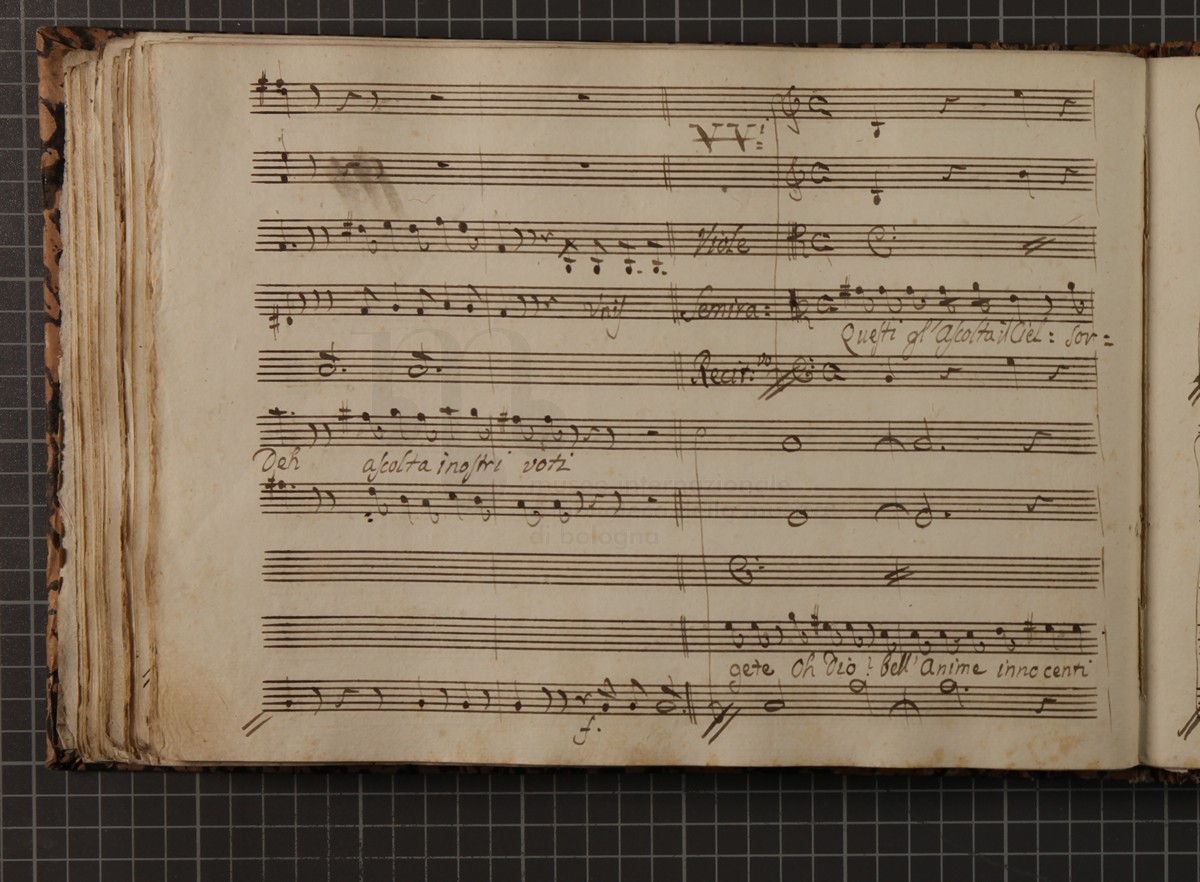 VV:
Viole
Unis
Semira:
Questi gl'ascolta il Ciel: sor=
Recit:vo
Deh ascolta i nostri voti
museo internazionale
di bologna
gete oh Dio! bell'Anime innocenti
f.